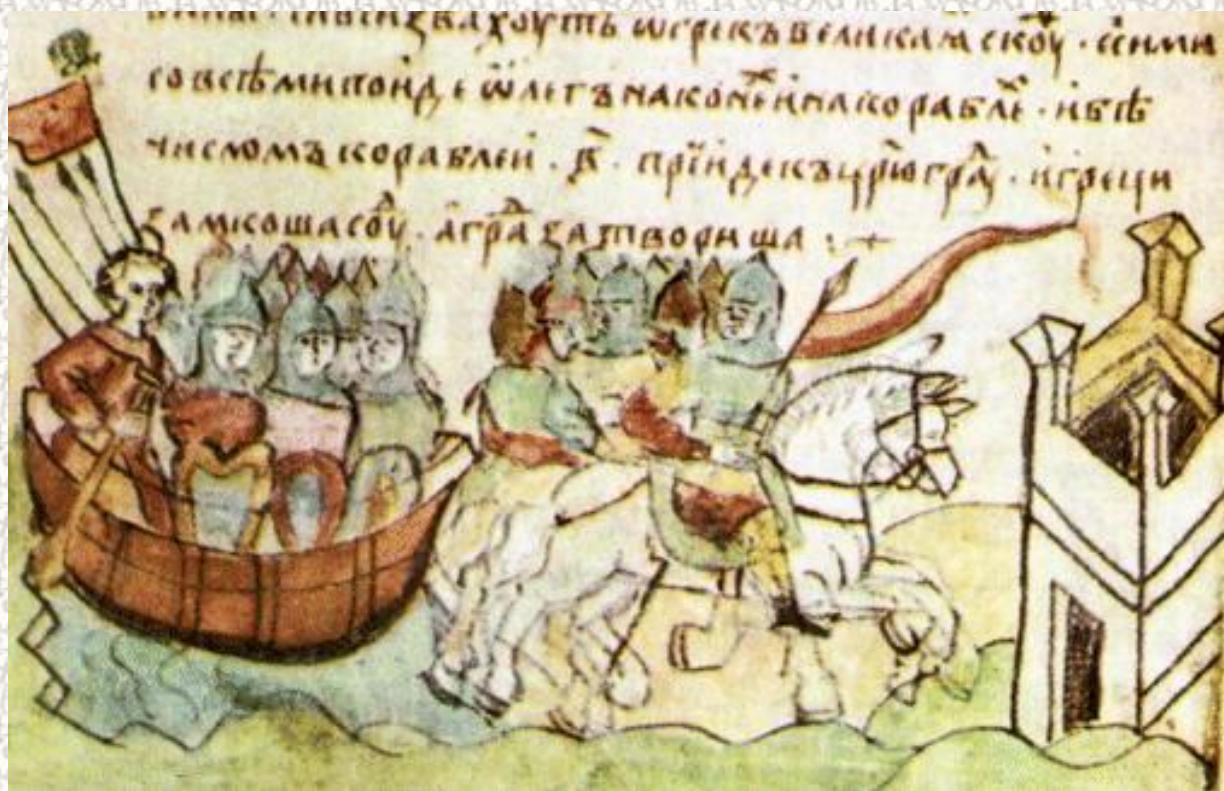 звахоуть ѿ грекъ великаꙗ скоуⷴ · сими
со всѣми поиде ѡлегъ на конеⷯ и на кораблеⷯ · и бѣ
числомъ кораблеи · в҃ · прїиде къ цр҃юграⷣ · и греци
замкоша соуⷣ · а граⷣ затвориша :